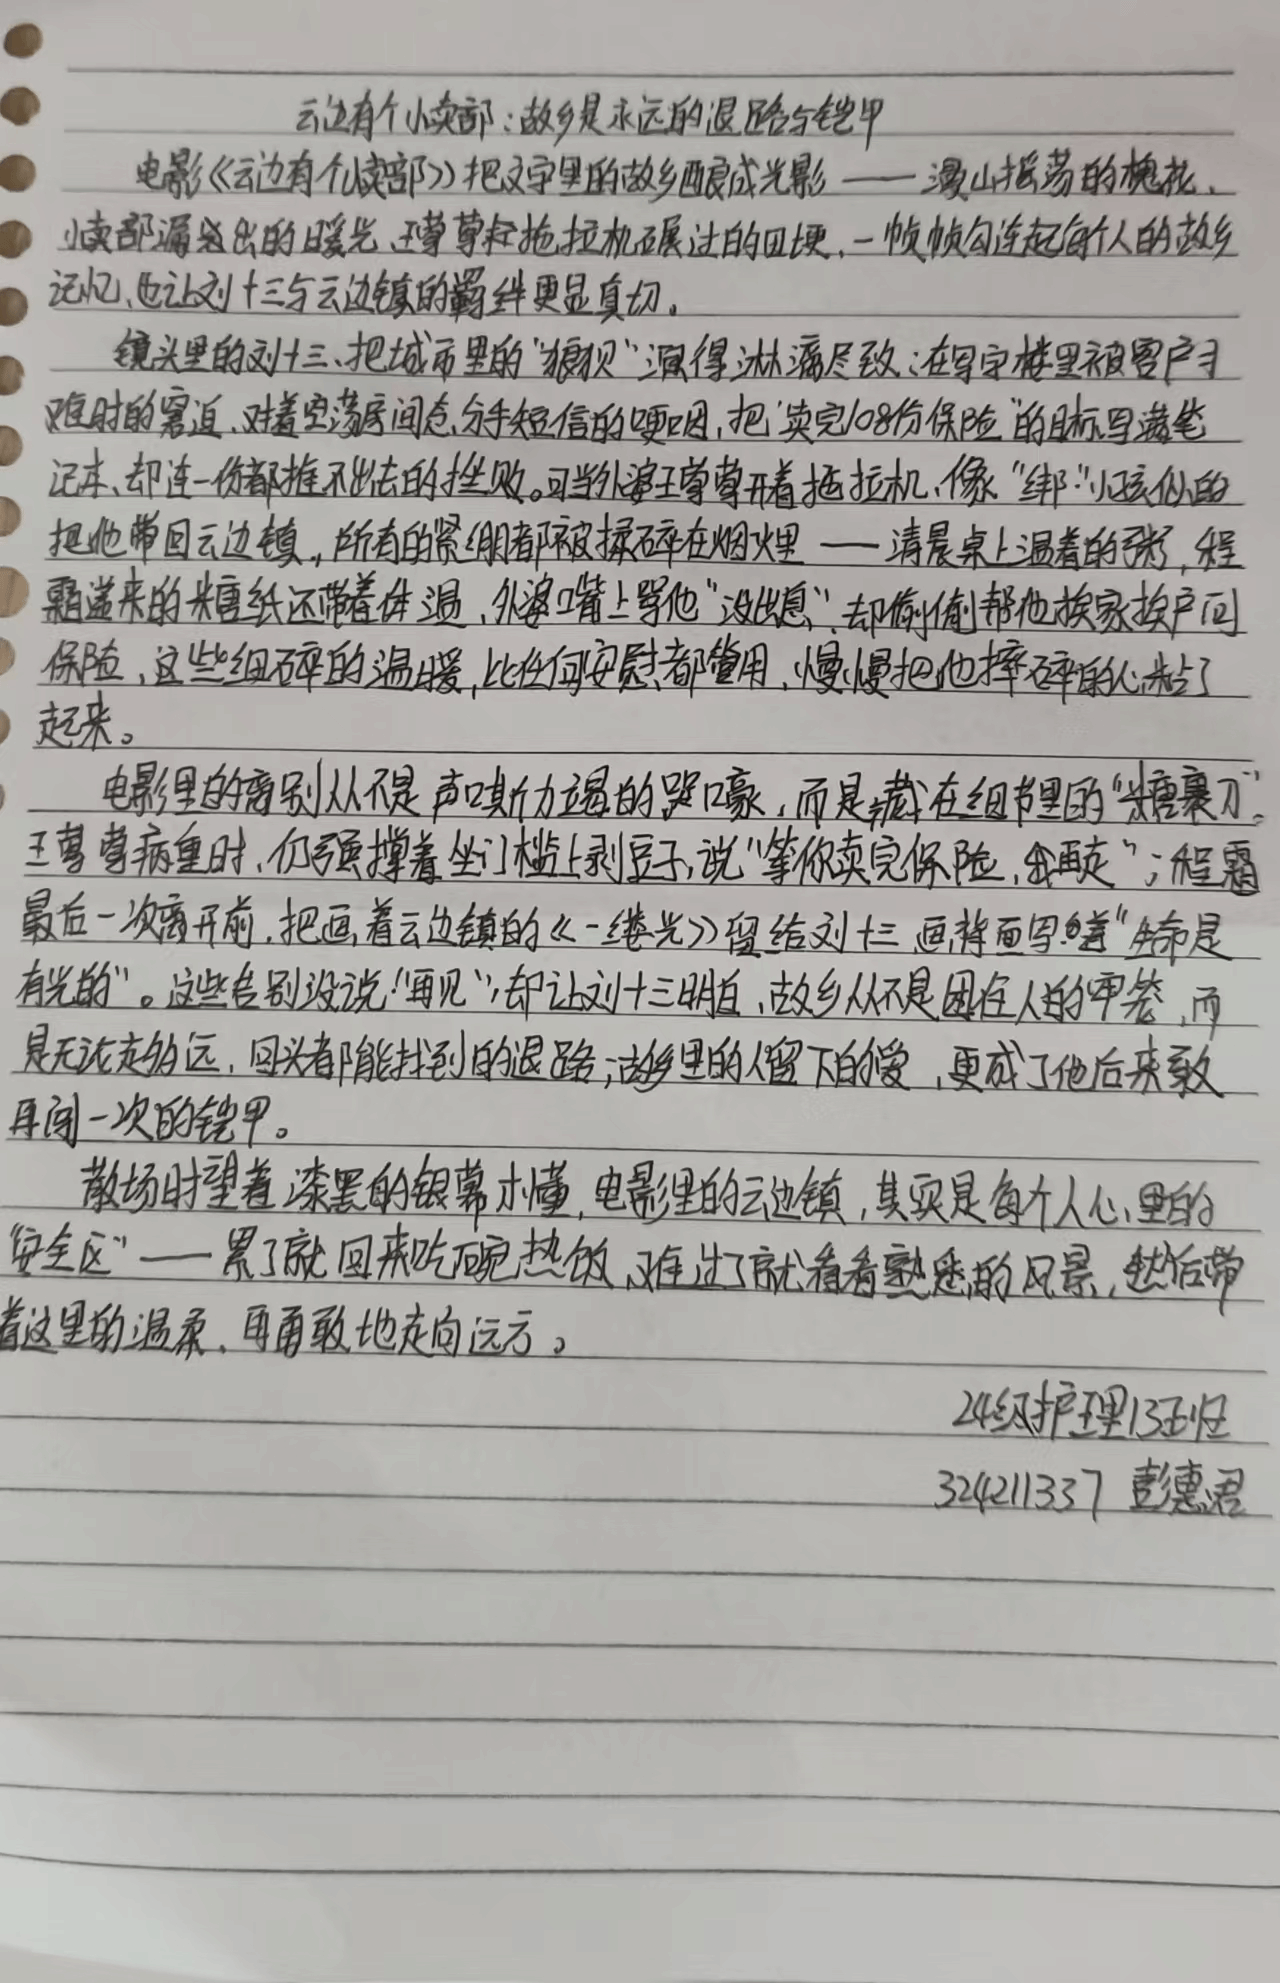 云边有个小卖部：故乡是永远的退路与铠甲
电影《云边有个小卖部》把文字里的故乡酿成光影——漫山摇荡的槐花、
小卖部漏出的暖光、王莺莺拖拉机碾过的田埂，一帧帧勾连起每个人的故乡
记忆，也让刘十三与云边镇的羁绊更显真切。
镜头里的刘十三、把城市里的“狼狈”演得淋漓尽致：在写字楼里被客户刁
难时的窘迫、对着空荡房间念分手短信的哽咽，把“卖完108份保险”的目标写满笔
记本、却连一份都推不出去的挫败。可当外婆王莺莺开着拖拉机、像“绑”小孩似的
把他带回云边镇，所有的紧绷都被揉碎在烟火里——清晨桌上温着的粥，程
霜递来的糖纸还带着体温，外婆嘴上骂他“没出息”，却偷偷帮他挨家挨户问
保险，这些细碎的温暖，比任何安慰都管用，慢慢把他摔碎的心粘了
起来。
电影里的离别从不是声嘶力竭的哭嚎，而是藏在细节里的“糖裹刀”。
王莺莺病重时，仍强撑着坐门槛上剥豆子，说“等你卖完保险，我再走”；程霜
最后一次离开前，把画着云边镇的《一缕光》留给刘十三，画背面写着“生命是
有光的”。这些告别没说“再见”，却让刘十三明白，故乡从不是困住人的牢笼，而
是无论走多远，回头都能找到的退路；故乡里的人留下的爱，更成了他后来敢
再闯一次的铠甲。
散场时望着漆黑的银幕才懂，电影里的云边镇，其实是每个人心里的
“安全区”——累了就回来吃碗热饭，难过了就看看熟悉的风景，然后带
着这里的温柔，再勇敢地走向远方。
24级护理13班
324211337 彭惠君